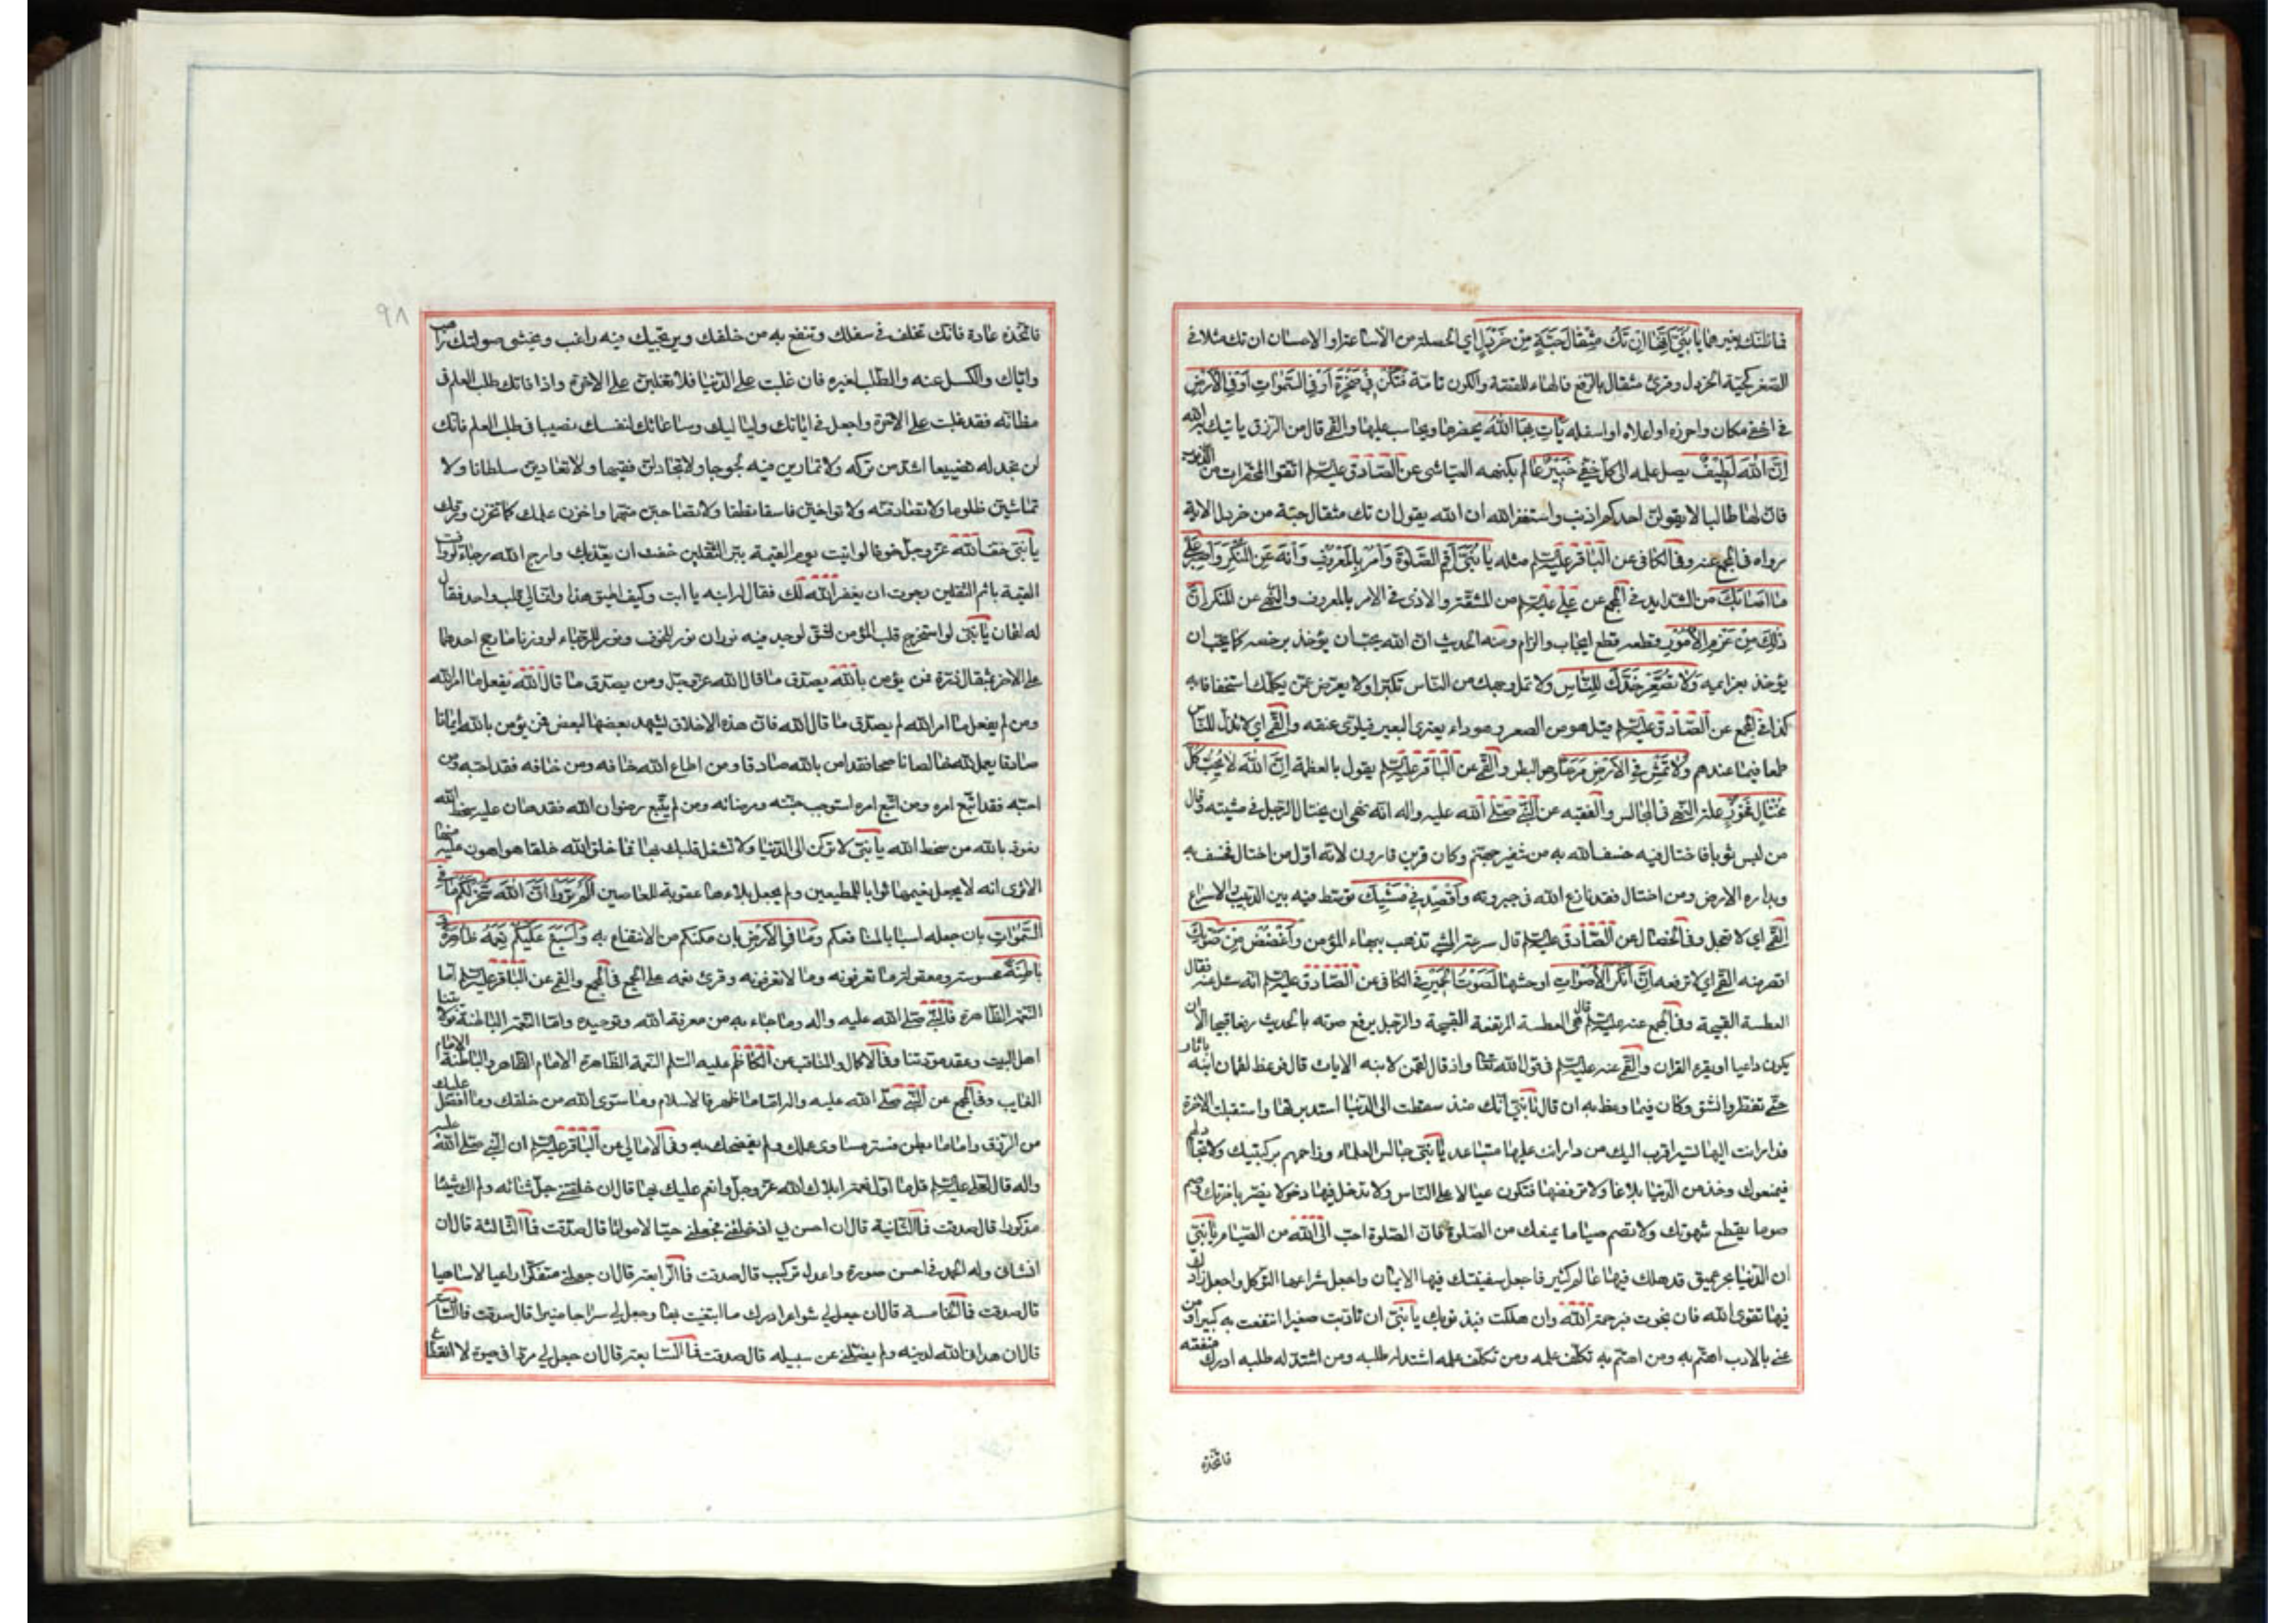 فما ظنك بغيرهما يا بني انها ان تك مثقال حبة من خردل اي الخصلة من الاساءة او الاحسان ان تك مثلا في
الصغر كحبة الخردل وقرئ مثقال بالرفع فالهاء للقصة والكون تامة فتكن في صخرة او في السموات او في الارض
في اخفى مكان واحرزه او اعلاه او اسفله يأت بها الله يحضرها ويحاسب عليها والقمي قال من الرزق ياتيك به الله
ان الله لطيف يصل علمه الى كل خفي خبير عالم بكنهه العياشي عن الصادق عليه السلم اتقوا المحقرات من الذنوب
فان لها طالبا لا يقولن احدكم اذنب واستغفر الله ان الله يقول ان تك مثقال حبة من خردل الاية
رواه في المجمع عنه وفي الكافي عن الباقر عليه السلم مثله يا بني اقم الصلوة وأمر بالمعروف وانه عن المنكر واصبر على
ما اصابك من الشدايد في المجمع عن علي عليه السلم من المشقة والاذى في الامر بالمعروف والنهي عن المنكر ان
ذلك من عزم الامور وقطعه قطع ايجاب والزام ومنه الحديث ان الله يحب ان يؤخذ برخصه كما يحب ان
يؤخذ بعزايمه ولا تصعر خدك للناس ولا تمل وجهك من الناس تكبرا ولا يعرض عمن يكلمك استخفافا به
كذا في المجمع عن الصادق عليه السلم قيل هو من الصعر وهو داء يعتري البعير فيلوى عنقه والقمي اي لا تذل للناس
طمعا فيما عندهم ولا تمش في الارض مرحا وهو البطر والقمي عن الباقر عليه السلم يقول بالعظمة ان الله لا يحب كل
مختال فخور علة النهي في المجالس والفقيه عن النبي صلى الله عليه واله انه نهى ان يختال الرجل في مشيته وقال
من لبس ثوبا فاختال فيه خسف الله به من شفير جهنم وكان قرين قارون لانه اول من اختال فخسف به
وبداره الارض ومن اختال فقد نازع الله في جبروته واقصد في مشيك توسط فيه بين الدبيب والاسراع
القمي اي لا تعجل وفي الخصال عن الصادق عليه السلم قال سرعة المشي تذهب ببهاء المؤمن واغضض من صوتك
اقصر منه القمي اي لا ترفعه ان انكر الاصوات اوحشها لصوت الحمير في الكافي عن الصادق عليه السلم انه سئل عنه فقال
العطسة القبيحة وفي المجمع عنه عليه السلم قال هي العطسة المرتفعة القبيحة والرجل يرفع صوته بالحديث رفعا قبيحا الا ان
يكون داعيا او يقرء القران والقمي عنه عليه السلم في قول الله تعالى واذ قال لقمن لابنه الايات قال فوعظ لقمان ابنه باثار
حتى تفطر وانشق وكان فيما وعظ به ان قال يا بني انك منذ سقطت الى الدنيا استدبرتها واستقبلت الاخرة
فدار انت اليها تسير اقرب اليك من دار انت عليها متباعد يا بني جالس العلماء وزاحمهم بركبتيك ولا تجادلهم
فيمنعوك وخذ من الدنيا بلاغا ولا ترفضها فتكون عيالا على الناس ولا تدخل فيها دخولا يضر باخرتك وصم
صوما يقطع شهوتك ولا تصم صياما يمنعك من الصلوة فان الصلوة احب الى الله من الصيام يا بني
ان الدنيا بحر عميق قد هلك فيها عالم كثير فاجعل سفينتك فيها الايمان واجعل شراعها التوكل واجعل زادك
فيها تقوى الله فان نجوت فبرحمة الله وان هلكت فبذنوبك يا بني ان تادبت صغيرا انتفعت به كبيرا ومن
عنى بالادب اهتم به ومن اهتم به تكلف علمه ومن تكلف علمه اشتد له طلبه ومن اشتد له طلبه ادرك منفعته
فاتخذه
٩٨
فاتخذه عادة فانك تخلف في سلفك وتنفع به من خلفك ويرتجيك فيه راغب ويخشى صولتك راهب
واياك والكسل عنه والطلب لغيره فان غلبت على الدنيا فلا تغلبن على الاخرة واذا فاتك طلب العلم في
مظانه فقد غلبت على الاخرة واجعل في ايامك ولياليك وساعاتك لنفسك نصيبا في طلب العلم فانك
لن تجد له تضييعا اشد من تركه ولا تمارين فيه لجوجا ولا تجادلن فقيها ولا تعادين سلطانا ولا
تماشين ظلوما ولا تصادقنه ولا تواخين فاسقا نطفا ولا تصاحبن متهما واخزن علمك كما تخزن ورقك
يا بني خف الله عز وجل خوفا لو اتيت يوم القيمة ببر الثقلين خفت ان يعذبك وارج الله رجاء لو وافيت
القيمة باثم الثقلين رجوت ان يغفر الله لك فقال له ابنه يا ابت وكيف اطيق هذا وانما لي قلب واحد فقال
له لقمان يا بني لو استخرج قلب المؤمن فشق لوجد فيه نوران نور للخوف ونور للرجاء لو وزنا ما رجح احدهما
على الاخر بمثقال ذرة فمن يؤمن بالله يصدق ما قال الله عز وجل ومن يصدق ما قال الله يفعل ما امر الله
ومن لم يفعل ما امر الله لم يصدق ما قال الله فان هذه الاخلاق يشهد بعضها لبعض فمن يؤمن بالله ايمانا
صادقا يعمل لله خالصا ناصحا فقد امن بالله صادقا ومن اطاع الله خافه ومن خافه فقد احبه ومن
احبه فقد اتبع امره ومن اتبع امره استوجب جنته ومرضاته ومن لم يتبع رضوان الله فقد هان عليه سخط الله
نعوذ بالله من سخط الله يا بني لا تركن الى الدنيا ولا تشغل قلبك بها فما خلق الله خلقا هو اهون عليه منها
الا ترى انه لا يجعل نعيمها ثوابا للمطيعين ولم يجعل بلاءها عقوبة للعاصين الم تروا ان الله سخر لكم ما في
السموات بان جعله اسبابا لمنافعكم وما في الارض بان مكنكم من الانتفاع به واسبغ عليكم نعمه ظاهرة و
باطنة محسوسة ومعقولة ما تعرفونه وما لا تعرفونه وقرئ نعمه على الجمع في المجمع والقمي عن الباقر عليه السلم اما
النعمة الظاهرة فالنبي صلى الله عليه واله وما جاء به من معرفة الله وتوحيده واما النعمة الباطنة فولايتنا
اهل البيت وعقد مودتنا وفي الاكمال والمناقب عن الكاظم عليه السلم النعمة الظاهرة الامام الظاهر والباطنة الامام
الغايب وفي المجمع عن النبي صلى الله عليه واله اما ما ظهر فالاسلام وما سوى الله من خلقك وما افضل عليك
من الرزق واما ما بطن فستر مساوى عملك ولم يفضحك به وفي الامالي عن الباقر عليه السلم ان النبي صلى الله عليه
واله قال لعلي عليه السلم قل ما اول نعمة ابلاك الله عز وجل وانعم عليك بها قال ان خلقني جل ثنائه ولم اك شيئا
مذكورا قال صدقت فما الثانية قال ان احسن بي اذ خلقني فجعلني حيا لا مواتا قال صدقت فما الثالثة قال ان
انشاني وله الحمد في احسن صورة واعدل تركيب قال صدقت فما الرابعة قال ان جعلني متفكرا داعيا لا ساهيا
قال صدقت فما الخامسة قال ان جعل لي شواعر ادرك ما ابتغيت بها وجعل لي سراجا منيرا قال صدقت فما السادسة
قال ان هداني الله لدينه ولم يضلني عن سبيله قال صدقت فما السابعة قال ان جعل لي مردا في حيوة لا انقطاع